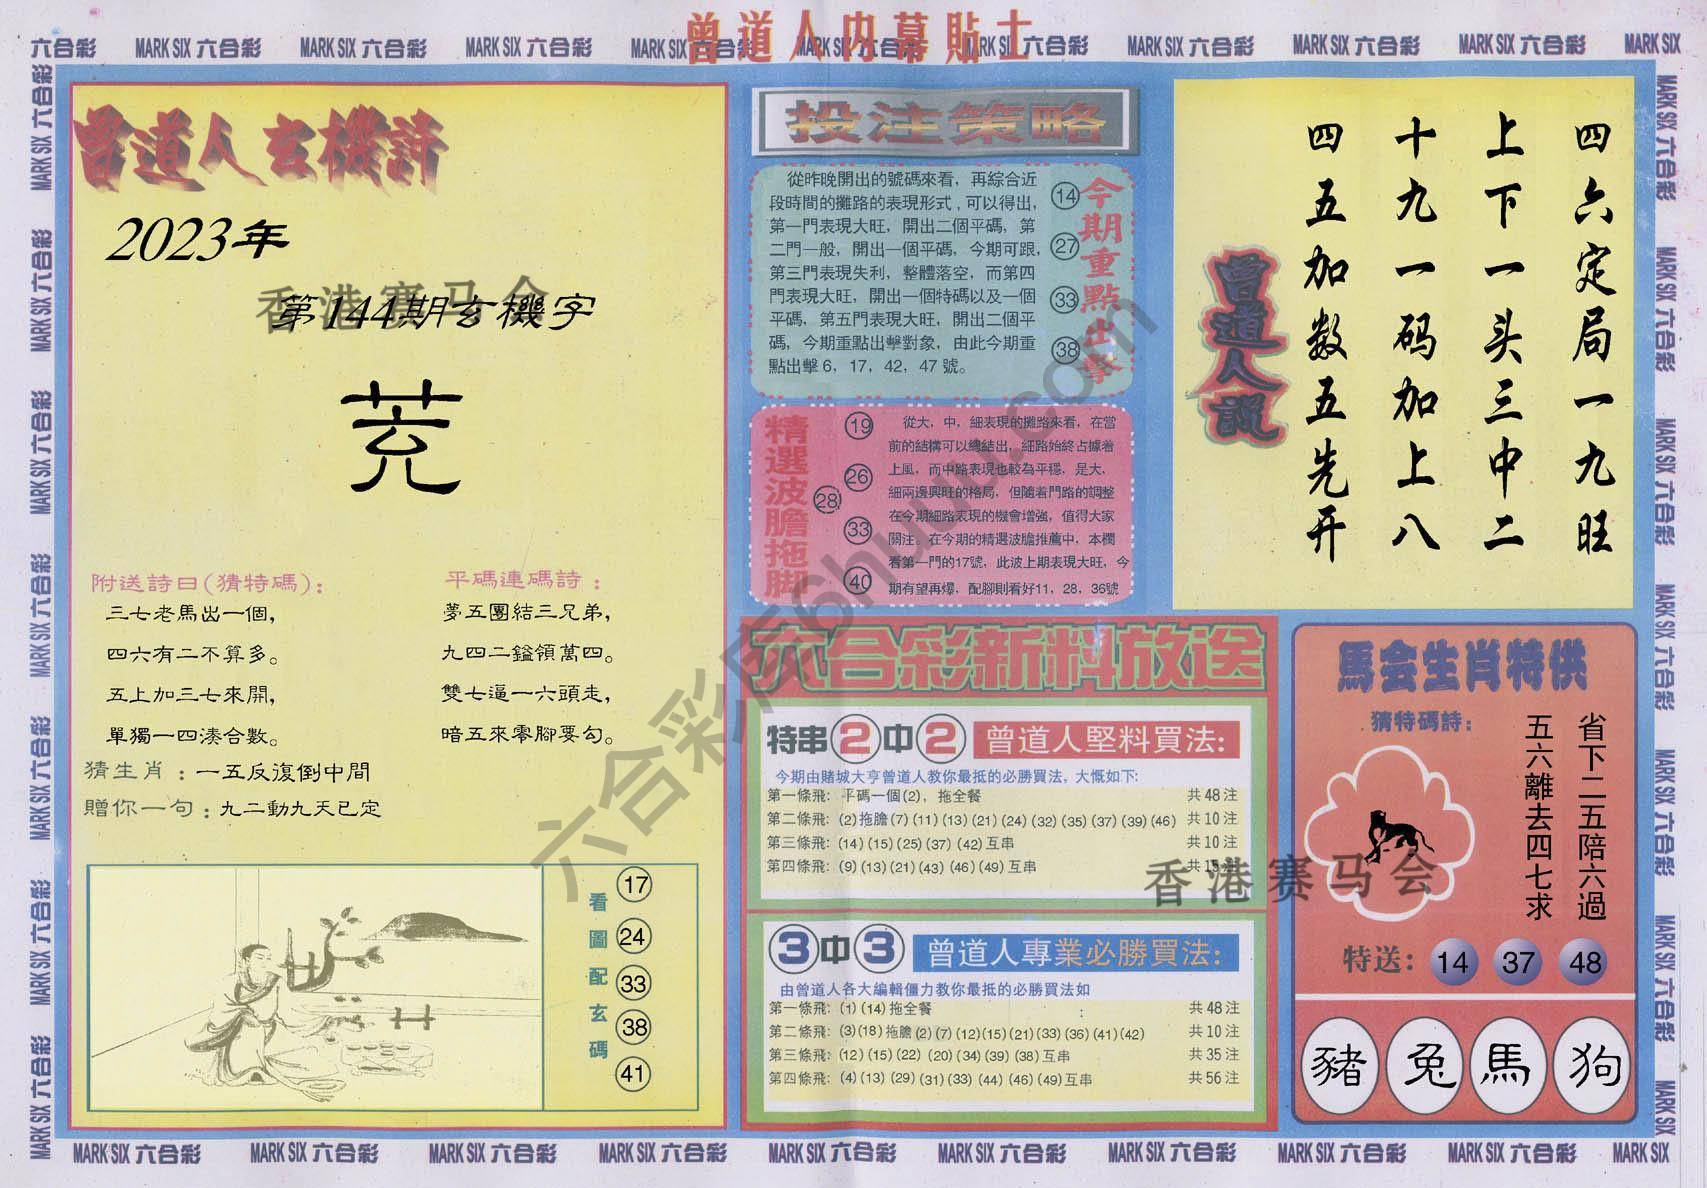 曾道人内幕貼士
六合彩 MARK SIX 六合彩 MARK SIX 六合彩 MARK SIX 六合彩 MARK SIX 六合彩 MARK SIX 六合彩 MARK SIX 六合彩 MARK SIX 六合彩 MARK SIX 六合彩 MARK SIX
曾道人玄機詩
2023年
第144期玄機字
香港赛马会
附送詩曰(猜特碼):
三七老馬出一個,
四六有二不算多。
五上加三七來開,
單獨一四湊合數。
平碼連碼詩:
夢五團結三兄弟,
九四二鎰領萬四。
雙七逼一六頭走,
暗五來零腳要勾。
猜生肖:一五反復倒中間
贈你一句:九二動九天已定
看圖配玄碼
17
24
33
38
41
投注策略
從昨晚開出的號碼來看,再綜合近
段時間的攤路的表現形式,可以得出,
第一門表現大旺,開出二個平碼,第
二門一般,開出一個平碼,今期可跟,
第三門表現失利,整體落空,而第四
門表現大旺,開出一個特碼以及一個
平碼,第五門表現大旺,開出二個平
碼,今期重點出擊對象,由此今期重
點出擊6,17,42,47號。
14
27
33
38
今期重點出擊
精選波膽拖脚
19
26
28
33
40
從大,中,細表現的攤路來看,在當
前的結構可以總結出,細路始終占據着
上風,而中路表現也較為平穩,是大,
細兩邊興旺的格局,但隨着門路的調整
在今期細路表現的機會增強,值得大家
關注。在今期的精選波膽推薦中,本欄
看第一門的17號,此波上期表現大旺,今
期有望再爆,配腳則看好11,28,36號
六合彩新料放送
特串2中2 曾道人堅料買法:
今期由賭城大亨曾道人教你最抵的必勝買法,大慨如下:
第一條飛: 平碼一個(2),拖全餐 共48注
第二條飛: (2)拖膽(7)(11)(13)(21)(24)(32)(35)(37)(39)(46) 共10注
第三條飛: (14)(15)(25)(37)(42)互串 共10注
第四條飛: (9)(13)(21)(43)(46)(49)互串 共15注
3中3 曾道人專業必勝買法:
由曾道人各大編輯僵力教你最抵的必勝買法如
第一條飛: (1)(14)拖全餐 : 共48注
第二條飛: (3)(18)拖膽(2)(7)(12)(15)(21)(33)(36)(41)(42) 共10注
第三條飛: (12)(15)(22)(20)(34)(39)(38)互串 共35注
第四條飛: (4)(13)(29)(31)(33)(44)(46)(49)互串 共56注
四六定局一九旺
上下一头三中二
十九一码加上八
四五加数五先开
曾道人說
馬会生肖特供
猜特碼詩:
省下二五陪六過
五六離去四七求
香港赛马会
特送: 14 37 48
豬 兔 馬 狗
六合彩库6huku.com
MARK SIX 六合彩 MARK SIX 六合彩 MARK SIX 六合彩 MARK SIX 六合彩 MARK SIX 六合彩 MARK SIX 六合彩 MARK SIX 六合彩 MARK SIX 六合彩 MARK SIX 六合彩 MARK SIX